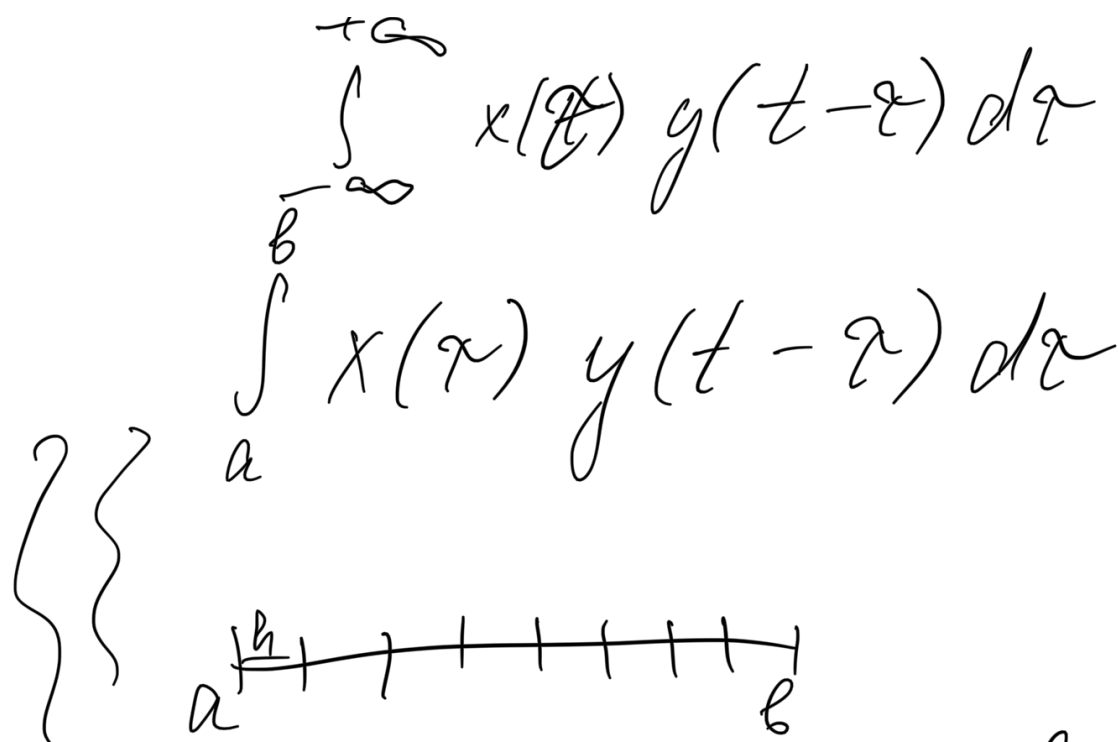 +∞
∫ x(τ) y(t-τ) dτ
-∞
b
∫ x(τ) y(t-τ) dτ
a
h
a b